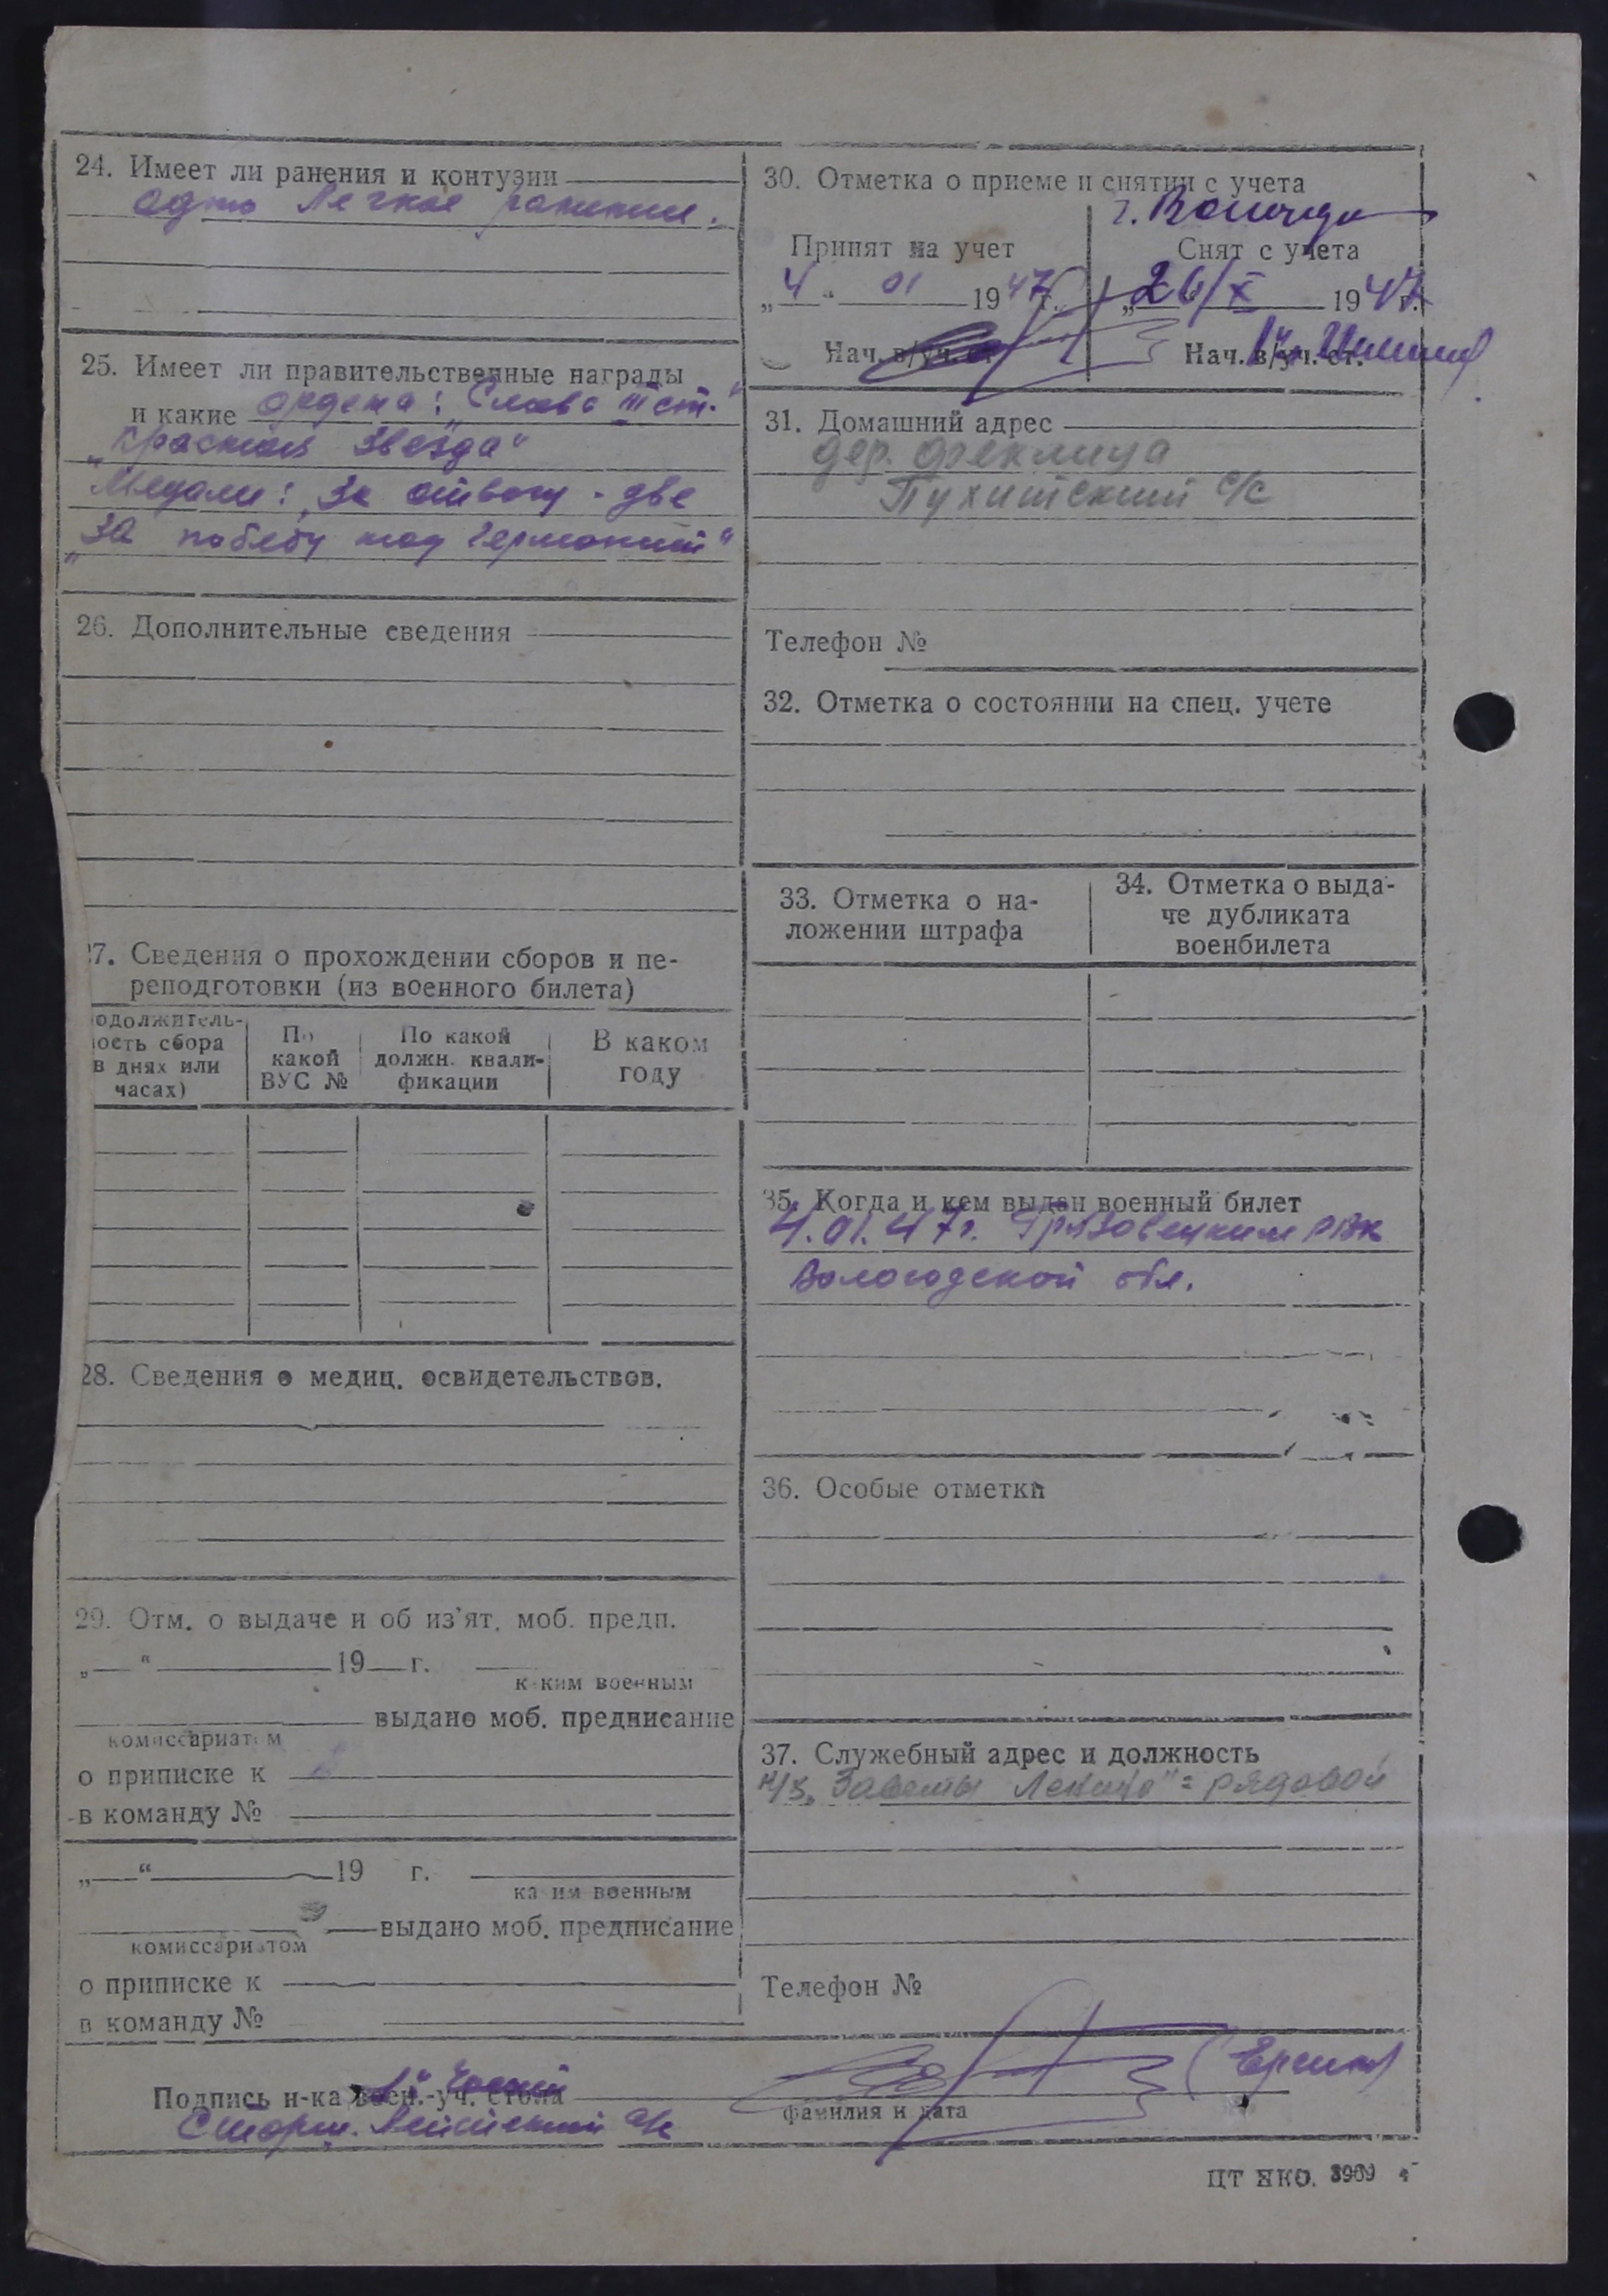 24. Имеет ли ранения и контузии
одно легкое ранение.
25. Имеет ли правительственные награды
и какие ордена: „Слава III ст."
„Красная Звезда"
Медали: „За отвагу - две
„За победу над Германией"
26. Дополнительные сведения
27. Сведения о прохождении сборов и пе-
реподготовки (из военного билета)
одолжитель-
ость сбора
в днях или
часах)
По
какой
ВУС №
По какой
должн. квали-
фикации
В каком
году
28. Сведения о медиц. освидетельствов.
29. Отм. о выдаче и об из'ят. моб. предп.
„ " 19 г.
каким военным
выдано моб. предписание
комиссариатом
о приписке к
в команду №
„ " 19 г.
каким военным
выдано моб. предписание
комиссариатом
о приписке к
в команду №
30. Отметка о приеме и снятии с учета
г. Вологда
Принят на учет
„4" 01 1947 г.
Нач. в/уч. ст.
Снят с учета
„26/X 1947 г.
Нач. в/уч. ст.
31. Домашний адрес
дер. Феклица
Пухитский с/с
Телефон №
32. Отметка о состоянии на спец. учете
33. Отметка о на-
ложении штрафа
34. Отметка о выда-
че дубликата
военбилета
35. Когда и кем выдан военный билет
4.01.47г. Грязовецким РВК
Вологодской обл.
36. Особые отметки
37. Служебный адрес и должность
к/з „Заветы Ленина" = рядовой
Телефон №
Подпись н-ка воен.-уч. стола
фамилия и дата
ЦТ НКО. 3969